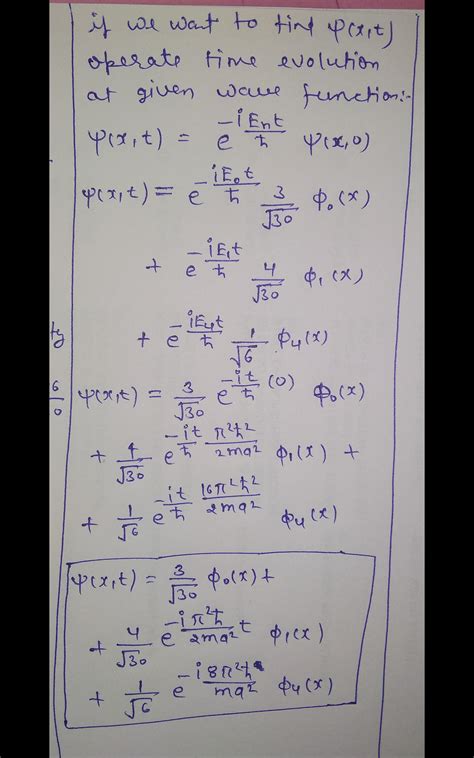 if we want to find ψ(x,t)
operate time evolution
at given wave function:-
ψ(x,t) = e^{-iE_n t/ħ} ψ(x,0)
ψ(x,t) = e^{-iE_0 t/ħ} 3/√30 ϕ_0(x)
+ e^{-iE_1 t/ħ} 4/√30 ϕ_1(x)
+ e^{-iE_4 t/ħ} 1/√6 ϕ_4(x)
ψ(x,t) = 3/√30 e^{-it/ħ (0)} ϕ_0(x)
+ 4/√30 e^{-it/ħ π²ħ²/2ma²} ϕ_1(x) +
+ 1/√6 e^{-it/ħ 16π²ħ²/2ma²} ϕ_4(x)
ψ(x,t) = 3/√30 ϕ_0(x) +
+ 4/√30 e^{-iπ²ħ/2ma² t} ϕ_1(x)
+ 1/√6 e^{-i8π²ħ/ma²} ϕ_4(x)